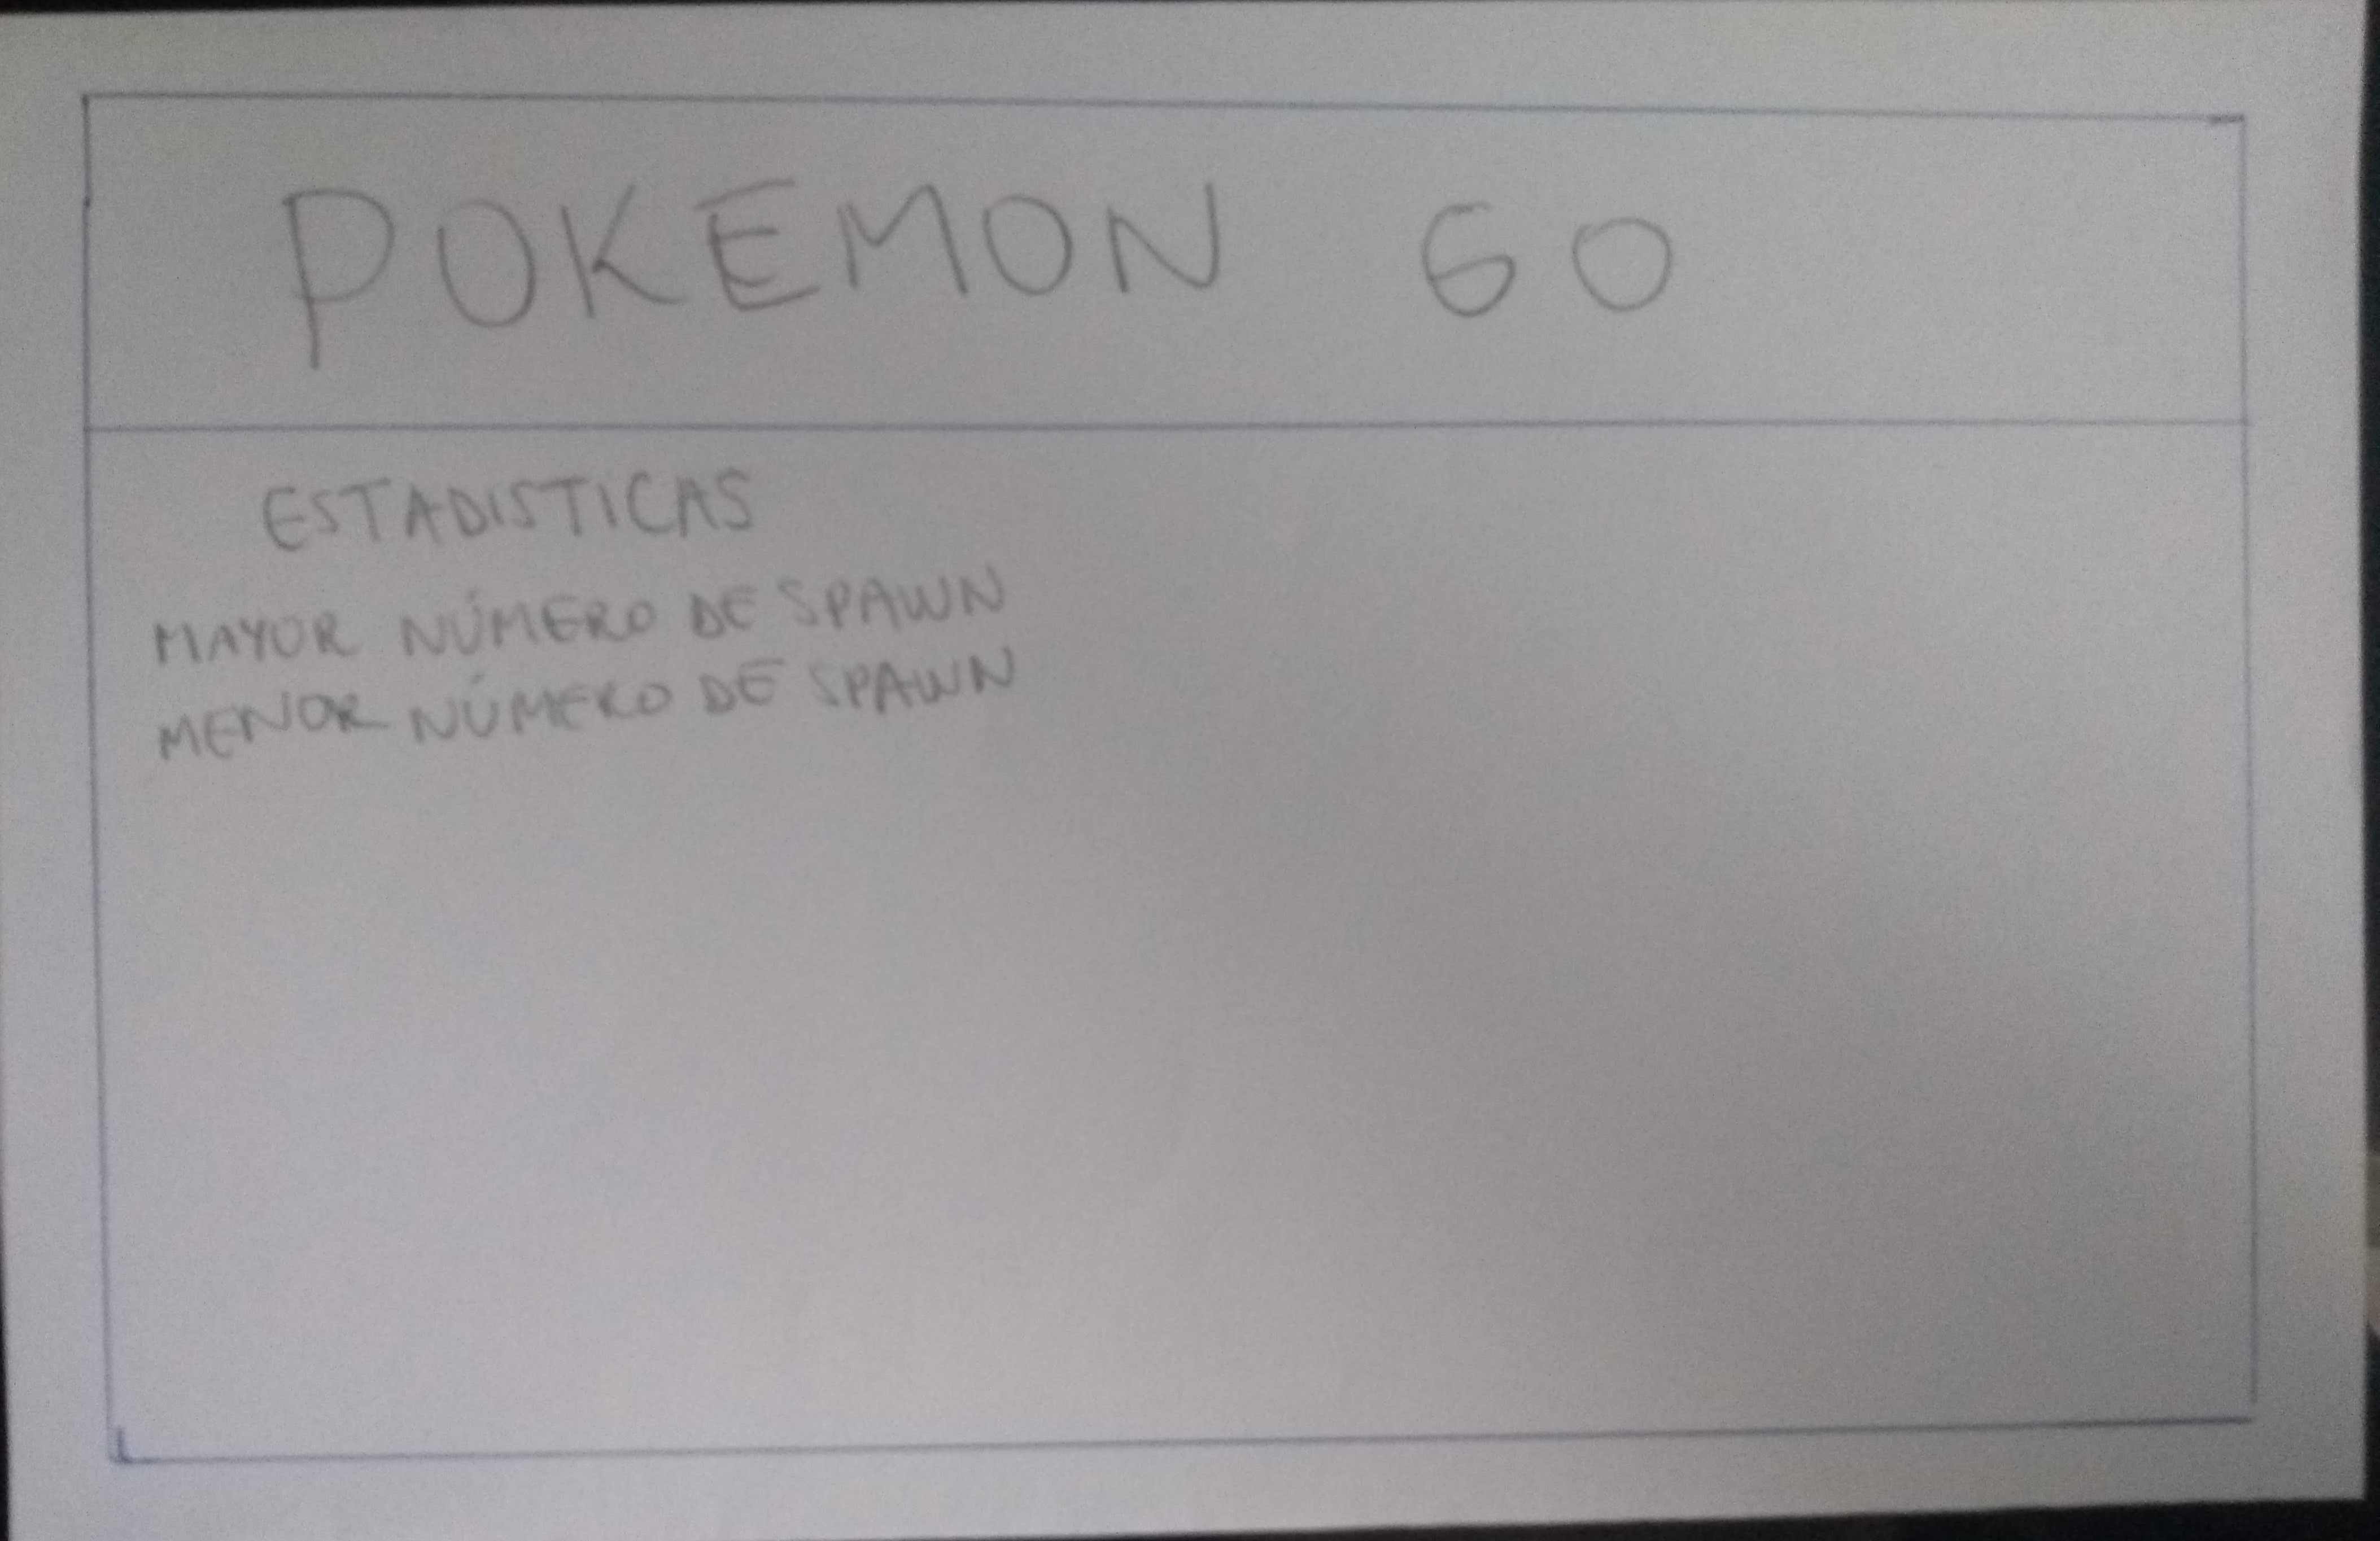 POKEMON GO
ESTADISTICAS
MAYOR NÚMERO DE SPAWN
MENOR NÚMERO DE SPAWN